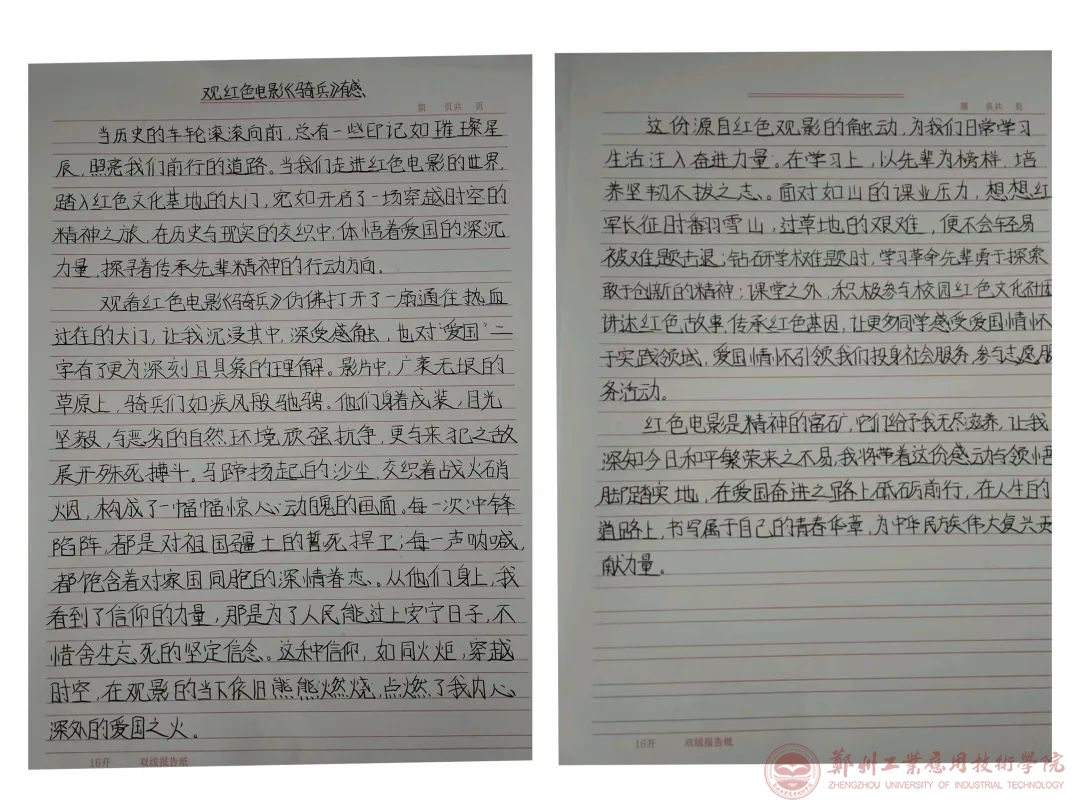 观红色电影《骑兵》有感
第 页共 页
当历史的车轮滚滚向前，总有一些印记如璀璨星
辰，照亮我们前行的道路。当我们走进红色电影的世界，
踏入红色文化基地的大门，宛如开启了一场穿越时空的
精神之旅，在历史与现实的交织中，体悟着爱国的深沉
力量，探寻着传承先辈精神的行动方向。
观看红色电影《骑兵》仿佛打开了一扇通往热血
过往的大门，让我沉浸其中，深受感触，也对“爱国”二
字有了更为深刻且具象的理解。影片中，广袤无垠的
草原上，骑兵们如疾风般驰骋。他们身着戎装，目光
坚毅，与恶劣的自然环境顽强抗争，更与来犯之敌
展开殊死搏斗。马蹄扬起的沙尘，交织着战火硝
烟，构成了一幅幅惊心动魄的画面。每一次冲锋
陷阵，都是对祖国疆土的誓死捍卫；每一声呐喊，
都饱含着对家国同胞的深情眷恋。从他们身上，我
看到了信仰的力量，那是为了人民能过上安宁日子，不
惜舍生忘死的坚定信念。这种信仰，如同火炬，穿越
时空，在观影的当下依旧熊熊燃烧，点燃了我内心
深处的爱国之火。
16开 双线报告纸
第 页共 页
这份源自红色观影的触动，为我们日常学习
生活注入奋进力量。在学习上，以先辈为榜样，培
养坚韧不拔之志。面对如山的课业压力，想想红
军长征时翻雪山，过草地的艰难，便不会轻易
被难题击退；钻研学术难题时，学习革命先辈勇于探索
敢于创新的精神；课堂之外，积极参与校园红色文化社团
讲述红色故事，传承红色基因，让更多同学感受爱国情怀
于实践领域，爱国情怀引领我们投身社会服务，参与志愿服
务活动。
红色电影是精神的富矿，它们给予我无尽滋养，让我
深知今日和平繁荣来之不易，我将带着这份感动与领悟
脚踏实地，在爱国奋进之路上砥砺前行，在人生的
道路上，书写属于自己的青春华章，为中华民族伟大复兴贡
献力量。
16开 双线报告纸
郑州工业应用技术学院
ZHENGZHOU UNIVERSITY OF INDUSTRIAL TECHNOLOGY